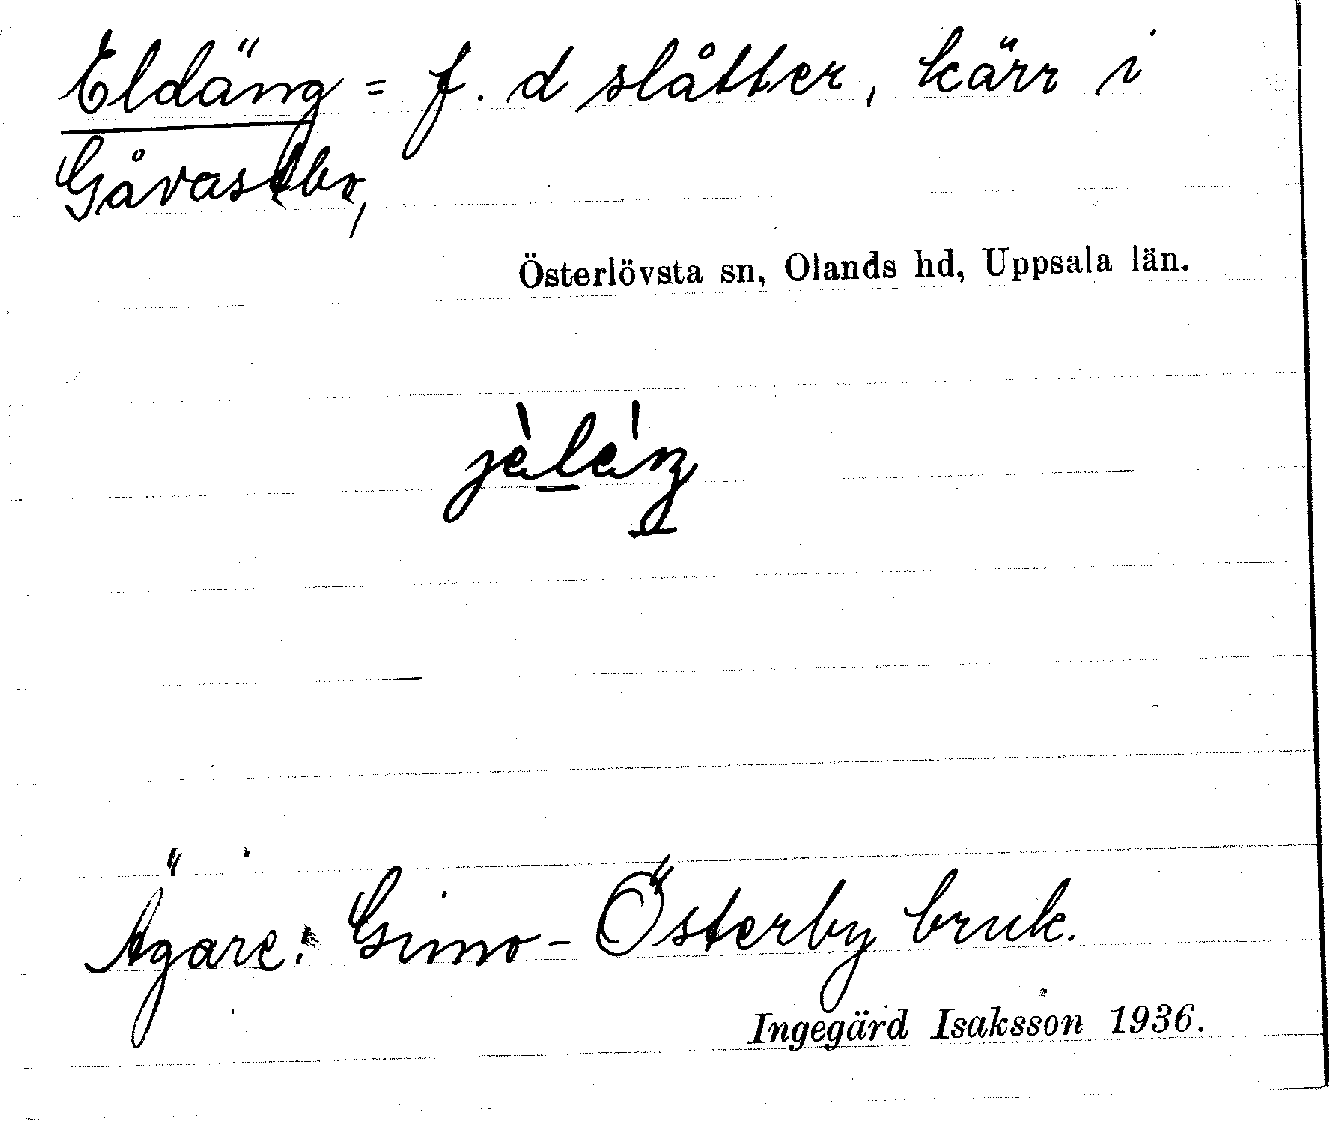 Eldäng = f. d slåtter, kärr i
Gåvastbo,
Österlövsta sn, Olands hd, Uppsala län.
Ägare: Gimo-Österby bruk.
Ingegärd Isaksson 1936.